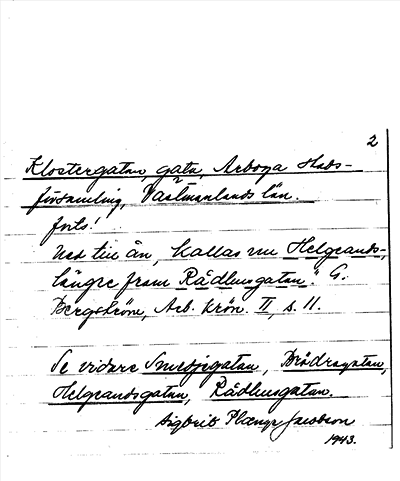 2
Klostergatan, gata, Arboga stads-
församling, Västmanlands län.
forts!
Ned till ån, kallas nu Helgeands-,
längre fram Rådhusgatan." G.
Bergström, Arb. krön. II, s. 11.
Se vidare Smedjegatan, Brödragatan,
Helgeandsgatan, Rådhusgatan.
Sigbrit Plænge Jacobson
1943.